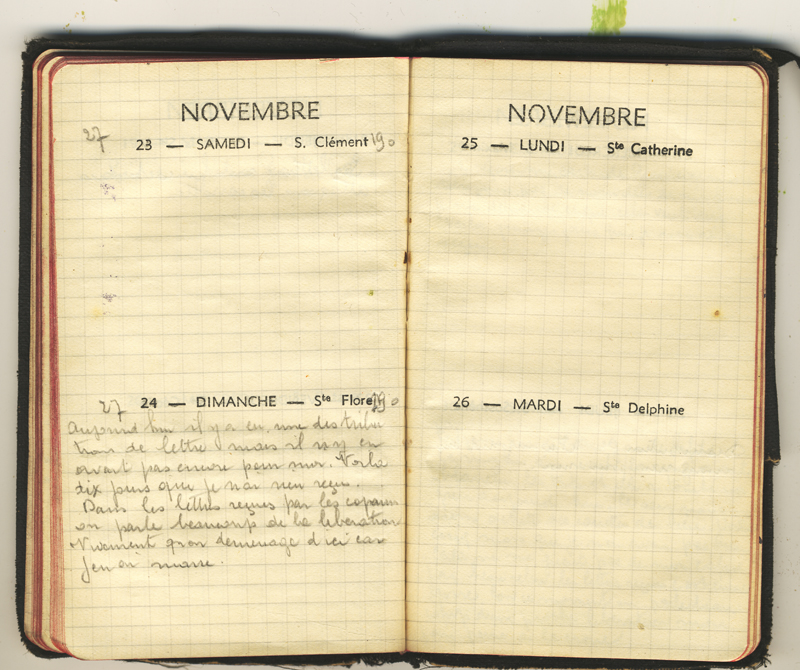 NOVEMBRE
27
23 — SAMEDI — S. Clément 190
27
24 — DIMANCHE — Ste Flore 190
Aujourd hui il y a eu une distribu
tion de lettre mais il n y en
avait pas encore pour moi. Voila
dix jours que je n ai rien reçu.
Dans les lettres reçues par les copains
on parle beaucoup de la libération
Vivement qu on demenage d ici car
j en ai marre.
NOVEMBRE
25 — LUNDI — Ste Catherine
26 — MARDI — Ste Delphine